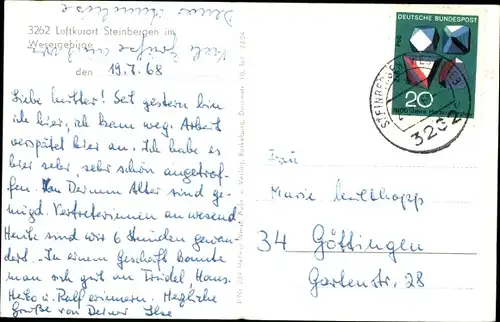 3262 Luftkurort Steinbergen im
Wesergebirge
den 19.7.68
Liebe Mutter! Seit gestern bin
ich hier, ich kam weg. Arbeit
verspätet hier an. Ich habe es
hier sehr, sehr schön angetrof-
fen. In Deinem Alter sind ge-
nügd. Vertreterinnen anwesend
Heute sind wir 6 Stunden gewan-
dert. In einem Geschäft konnte
man sich gut an Trudel, Hans,
Heiko u. Ralf erinnern. Herzliche
Grüße von Deiner Ilse
Viele Grüße
DEUTSCHE BUNDESPOST
20
STEINBERGEN
3262
Frau
Marie
34 Göttingen
Gartenstr. 28